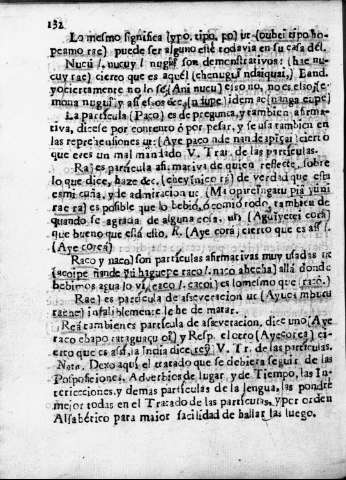 132
Lo mesmo significa lypo. tipo, po) ut (oubei tipo ho-
peamo rae) puede ser alguno este todavia en su casa del.
Nucũ l. nucuy l. nuguĩ son demonstrativos: (hae nu-
cuy rae) cierto que es aquel (chenuguĩ ndaiquai,) Eand.
yo ciertamente no lo se, (Ani nucu) esso no, no es esso, (e-
mona nuguĩ, y assi es os dec. (nãupe) idem ac (nanga eupe)
La particula (Paco) es de pregunta, y tambien afirma-
tiva, dicese por contento ò por pesar, y se usa tambien en
las reprehensiones ut: (Aye paco nde nandeapiçai) cierto
que eres un mal mandado V. Trat. de las particulas.
Ra) es particula afirmativa de quien reflecte, sobre
lo que dice, haze dec. (cheyĩnico rá) de verdad que esta
es mi cuña, y de admiracion ut (Mai opurei
rae ra) es posible que lo bebiò, ò comiò todo, tambien de
quando se agrada de alguna cosa, ut, (Aguĩyetei corá)
que bueno que està esto, R. (Aye corá) cierto que es assi l.
(Aye corea)
Raco y naco) son particulas afirmativas muy usadas ut
(acoipe ñande yũi haguepe raco l. naco ahecha) allà donde
bebimos agua lo vi, (caco l. cacoi) es lo mesmo que (raco.)
Rae) es particula de asseveracion ut (Ayuci mburu
raene) infaliblemente le he de matar.
Rea tambien es particula de asseveracion, dice uno (Aye
raco ebapo oĩ) y Resp. el otro (Ayecorea) ci-
erto que es assi, la India dice, reỹ V. Tr. de las particulas.
Nota. Dexo aqui el tratado que se debiera seguir de las
Posposiciones, Adverbios de lugar, y de Tiempo, las In-
teriecciones, y demas particulas de la lengua, las pondrè
mejor todas en el Tratado de las particulas, y por orden
Alfabético para maior facilidad de hallarlas luego.